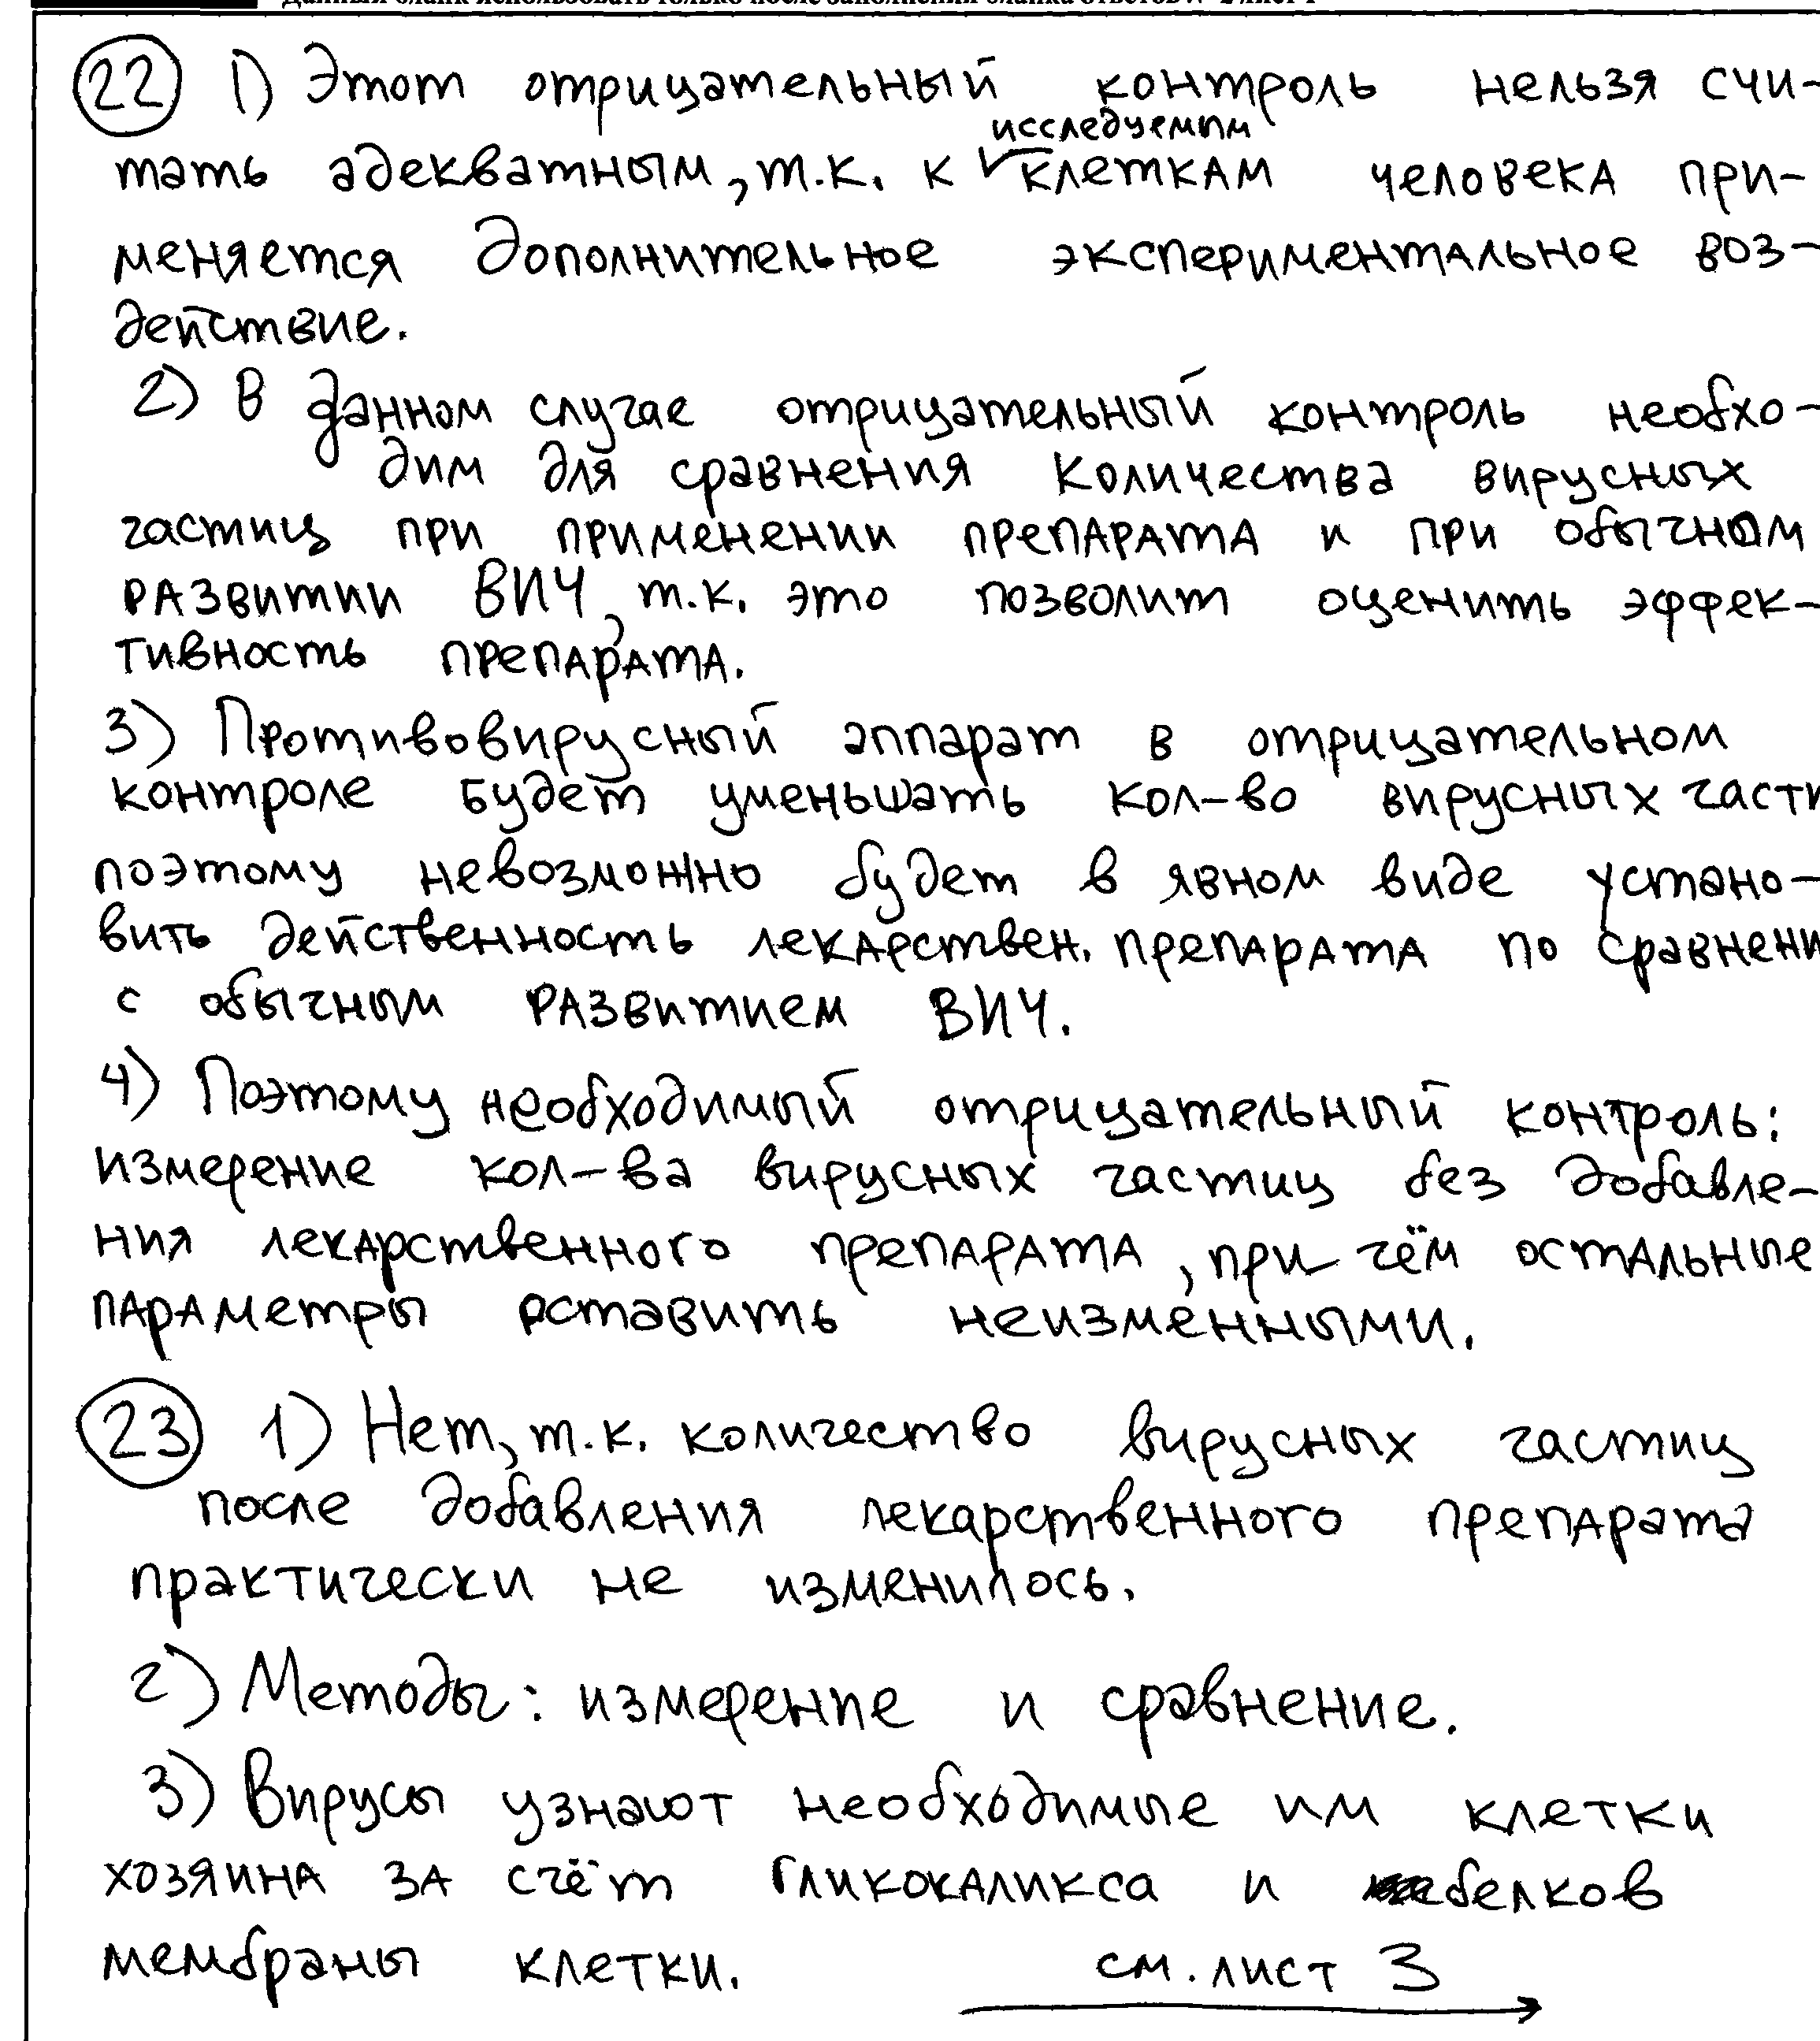 Данный бланк использовать только после заполнения бланка ответов № 2 лист 1
22 1) Этот отрицательный контроль нельзя счи-
исследуемым
тать адекватным, т.к. к клеткам человека при-
меняется дополнительное экспериментальное воз-
действие.
2) В данном случае отрицательный контроль необхо-
дим для сравнения количества вирусных
частиц при применении препарата и при обычном
развитии ВИЧ, т.к. это позволит оценить эффек-
тивность препарата.
3) Противовирусный аппарат в отрицательном
контроле будет уменьшать кол-во вирусных части
поэтому невозможно будет в явном виде устано-
вить действенность лекарствен. препарата по сравнени
с обычным развитием ВИЧ.
4) Поэтому необходимый отрицательный контроль:
измерение кол-ва вирусных частиц без добавле-
ния лекарственного препарата, при чём остальные
параметры оставить неизменными.
23 1) Нет, т.к. количество вирусных частиц
после добавления лекарственного препарата
практически не изменилось.
2) Методы: измерение и сравнение.
3) Вирусы узнают необходимые им клетки
хозяина за счёт гликокаликса и белков
мембраны клетки. см. лист 3